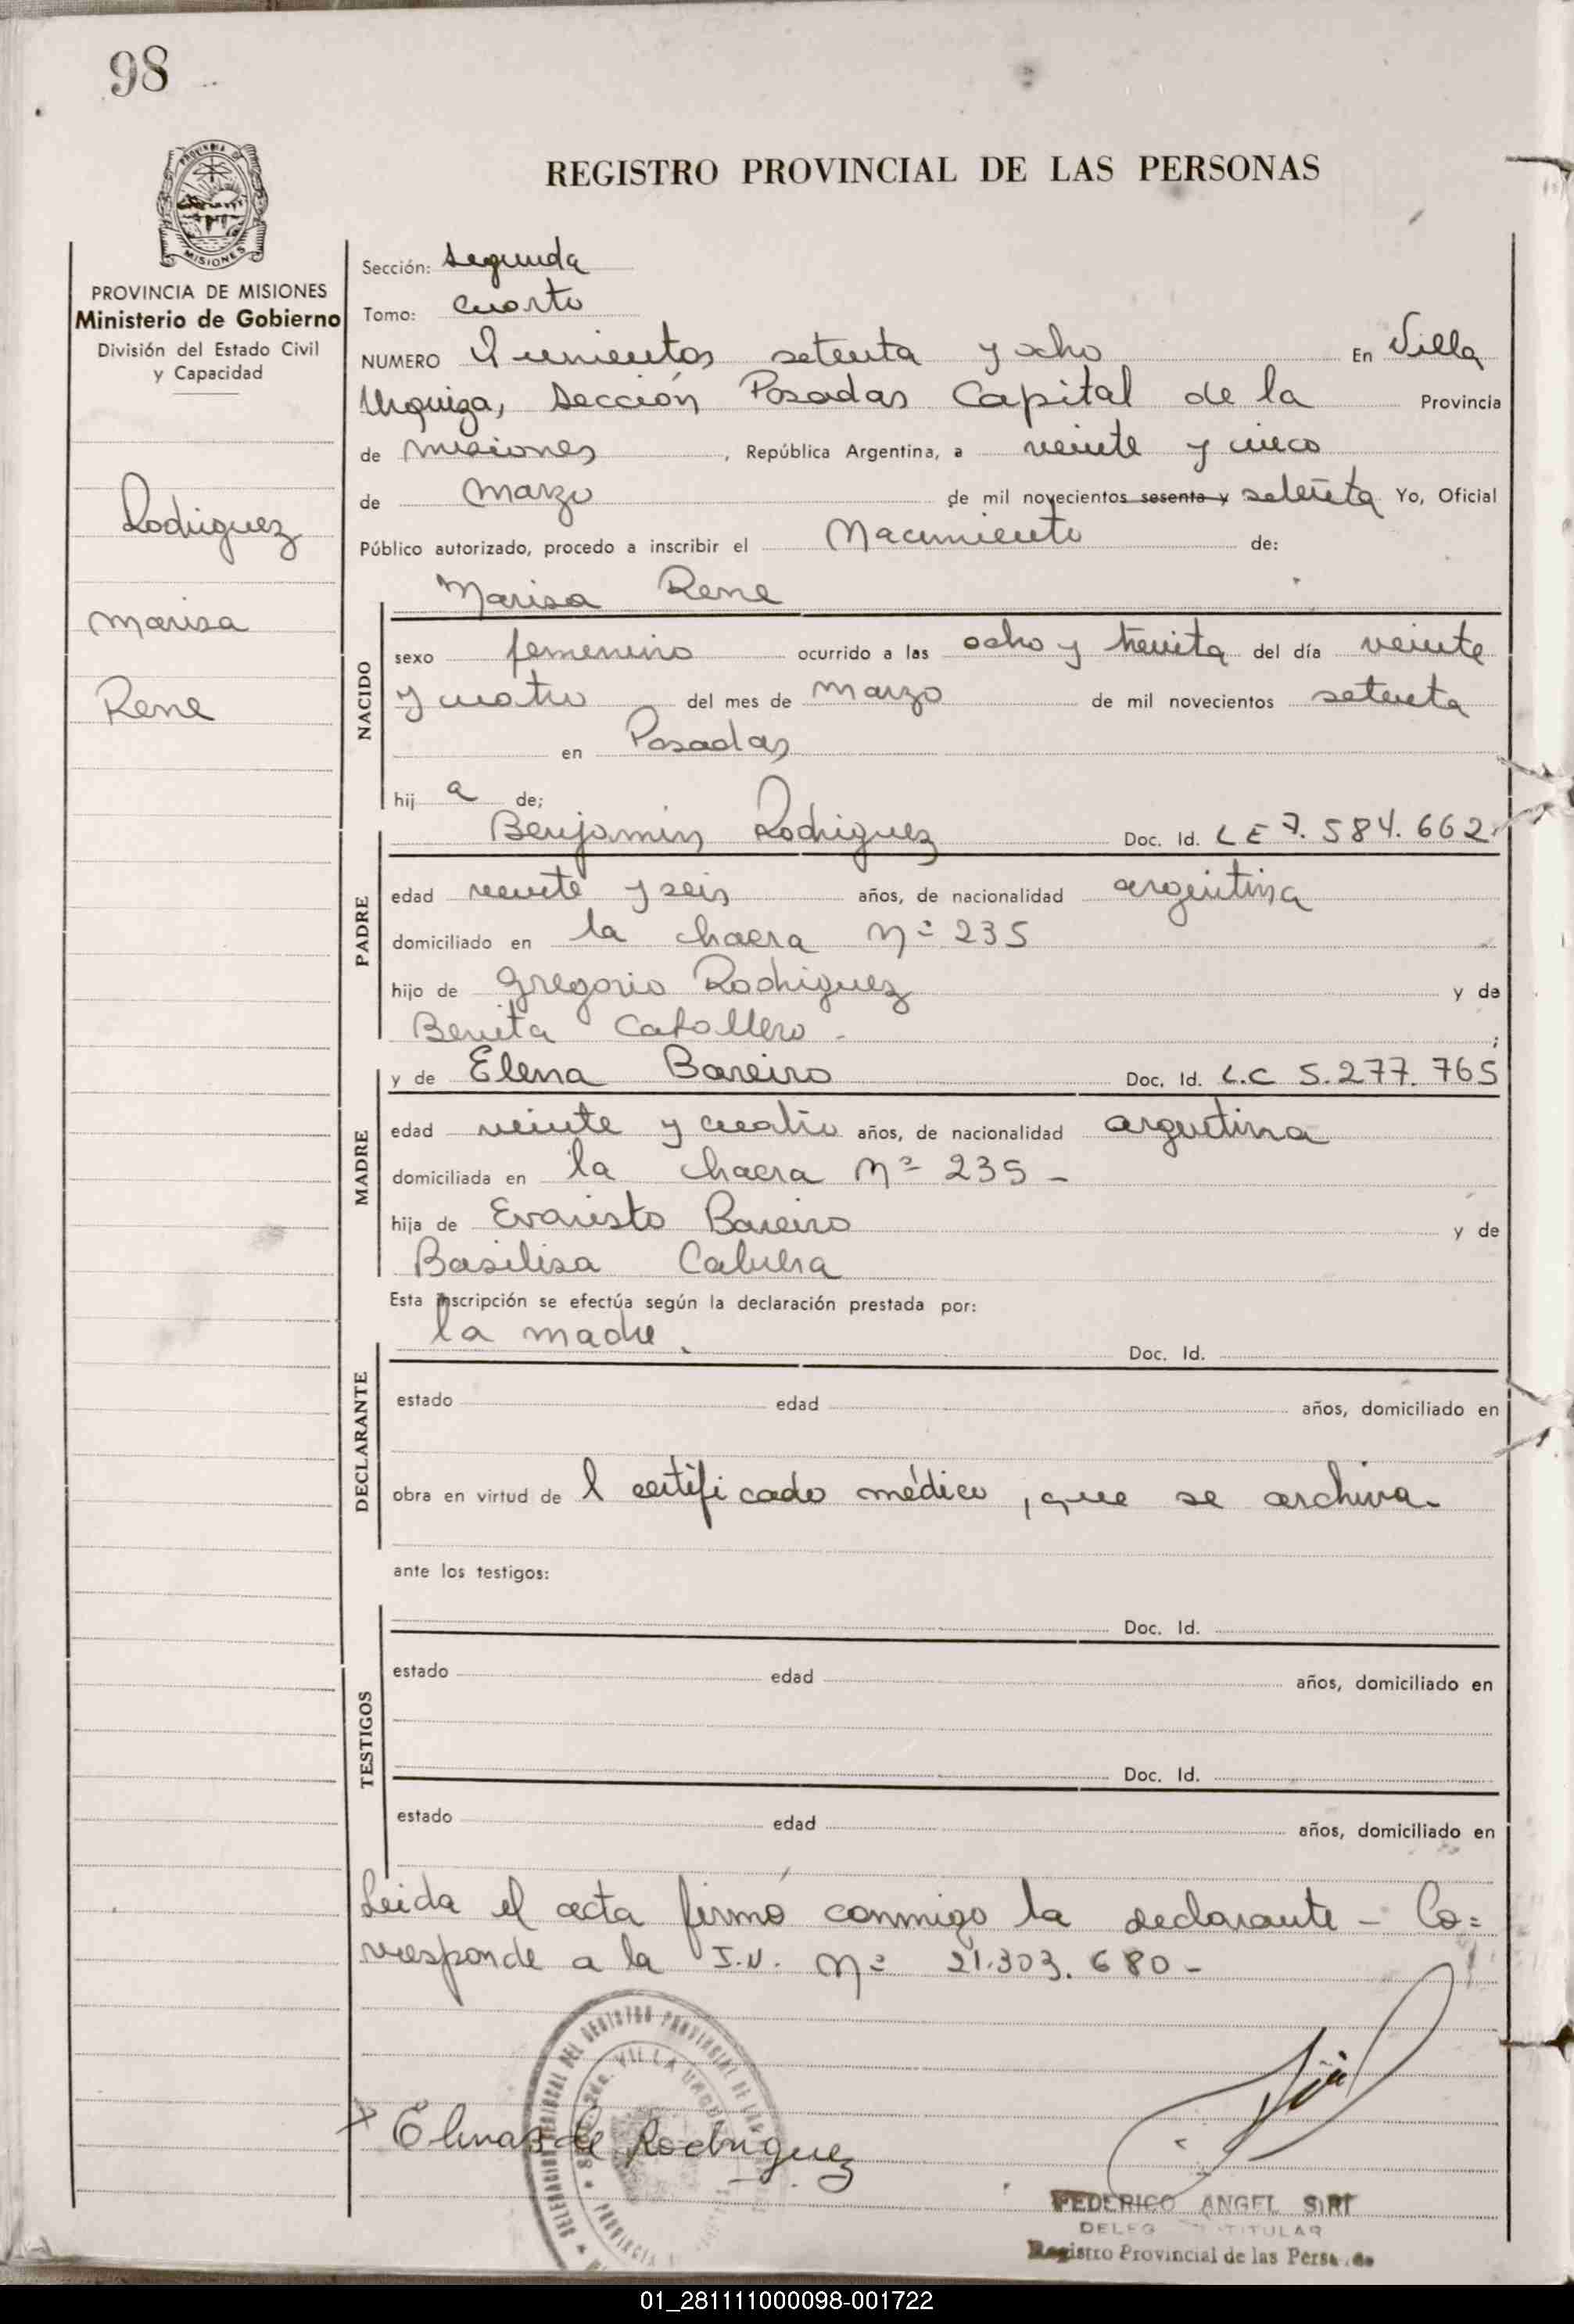 98
PROVINCIA DE MISIONES
Ministerio de Gobierno
División del Estado Civil
y Capacidad
Rodriguez
Marisa
Rene
REGISTRO PROVINCIAL DE LAS PERSONAS
Sección: Segunda
Tomo: Cuarto
NUMERO Quinientos setenta y ocho En Villa
Urquiza, Sección Posadas Capital de la Provincia
de Misiones, República Argentina, a veinte y cinco
de Marzo de mil novecientos sesenta y setenta Yo, Oficial
Público autorizado, procedo a inscribir el Nacimiento de:
Marisa Rene
NACIDO
sexo femenino ocurrido a las ocho y treinta del día veinte
y cuatro del mes de Marzo de mil novecientos setenta
en Posadas
hij a de;
Benjamin Rodriguez Doc. Id. L E 7.584.662
PADRE
edad veinte y seis años, de nacionalidad argentina
domiciliado en la chacra Nº 235
hijo de Gregorio Rodriguez y de
Benita Caballero - ;
y de Elena Bareiro Doc. Id. L.C 5.277.765
MADRE
edad veinte y cuatro años, de nacionalidad argentina
domiciliada en la chacra Nº 235 -
hija de Evaristo Bareiro y de
Basilisa
Esta inscripción se efectúa según la declaración prestada por:
la madre. Doc. Id.
DECLARANTE
estado edad años, domiciliado en
obra en virtud de l certificado médico, que se archiva.
ante los testigos:
Doc. Id.
TESTIGOS
estado edad años, domiciliado en
Doc. Id.
estado edad años, domiciliado en
Leida el acta firmó conmigo la declarante - Co=
rresponde a la I.N. Nº 21.303.680 -
Elena B de Rodriguez
FEDERICO ANGEL SIRI
TITULAR
Registro Provincial de las Personas
01_281111000098-001722